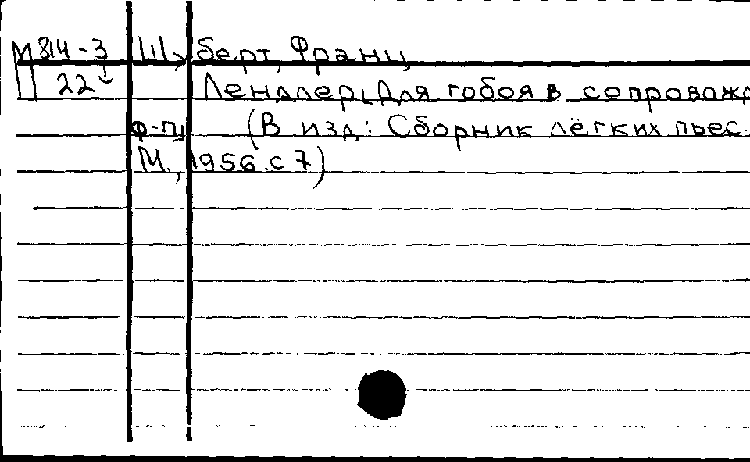 М 814-3 Шуберт, Франц
П 22 Лендлер. Для гобоя в сопровожд
ф-п (В изд: Сборник лёгких пьес.
М., 1956. с 7)